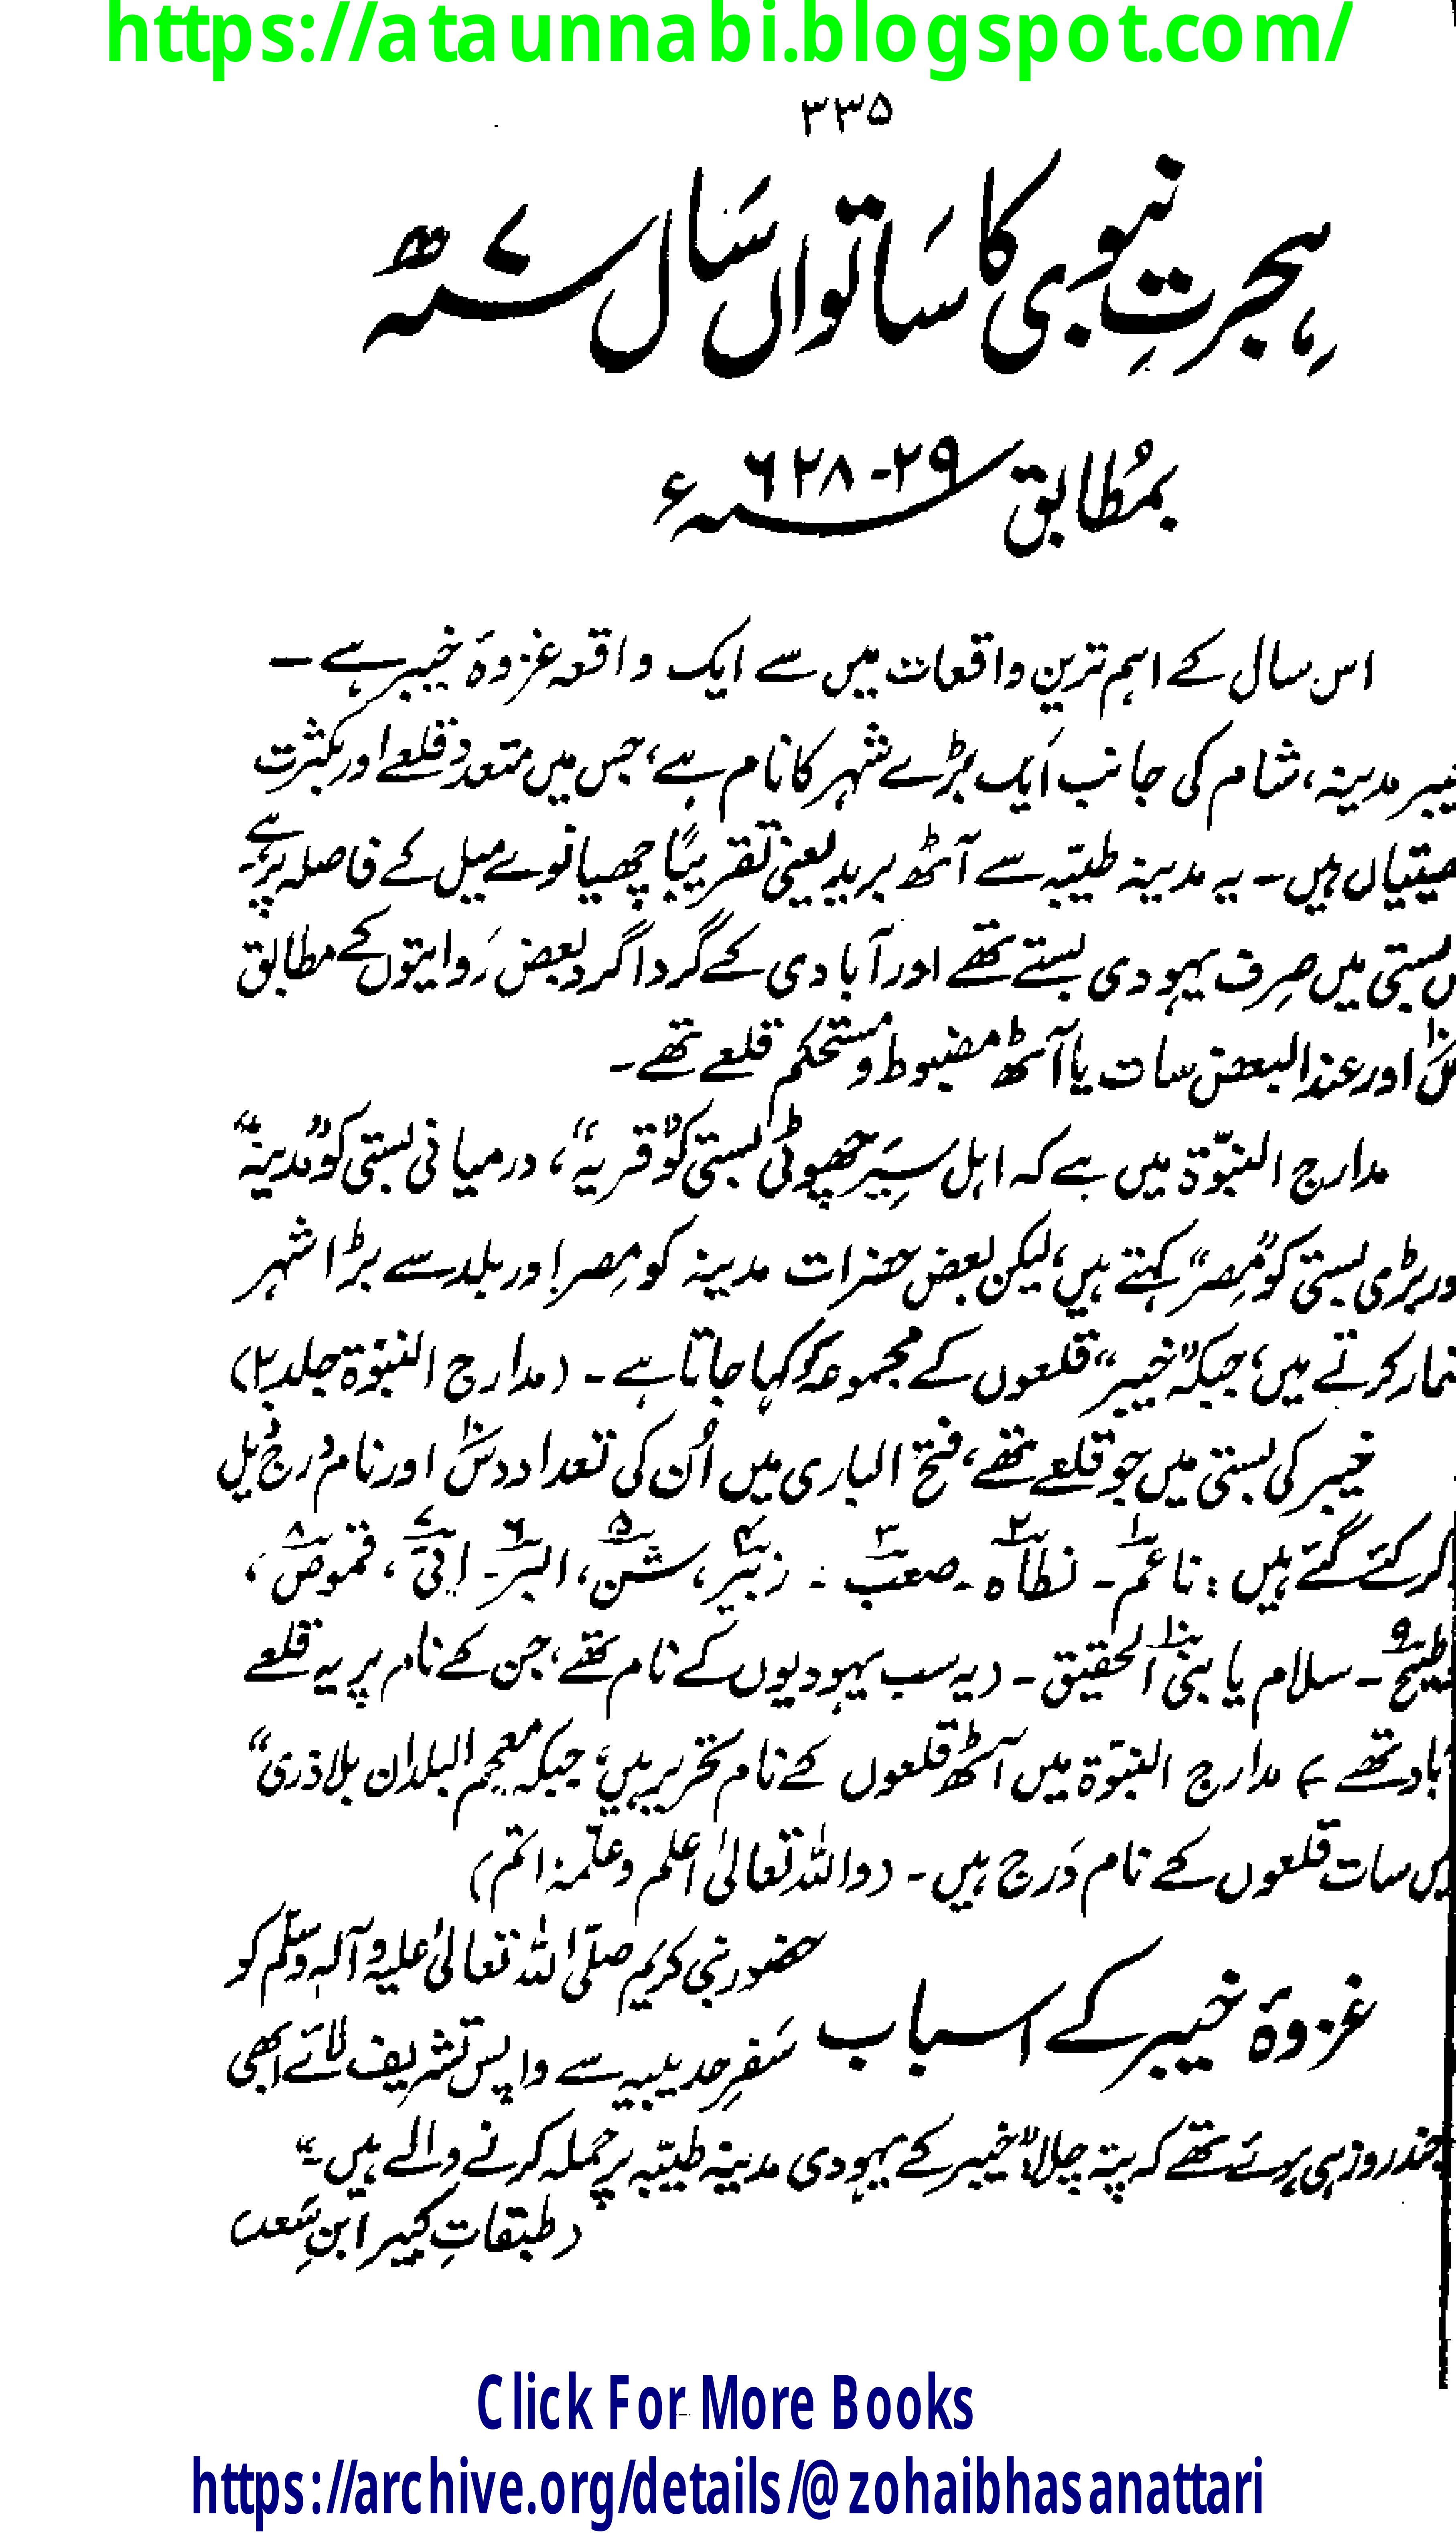 https://ataunnabi.blogspot.com/
۳۳۵
ہجرتِ نبوی کا ساتواں سَال سنہ ۷ھ
بمُطابق سنہ ۲۹-۶۲۸ء
اس سال کے اہم ترین واقعات میں سے ایک واقعہ غزوۂ خیبر ہے –
خیبر مدینہ، شام کی جانب ایک بڑے شہر کا نام ہے، جس میں متعدد قلعے اور بکثرت
کھیتیاں ہیں۔ یہ مدینہ طیّبہ سے آٹھ برید یعنی تقریبًا چھیانوے میل کے فاصلہ پر ہے۔
اس بستی میں صِرف یہودی بستے تھے اور آبادی کے گرداگرد بعض رَوایتوں کے مطابق
دسؔ۱۰ اور عند البعض سات یا آٹھ مضبوط و مستحکم قلعے تھے۔
مدارج النبوّۃ میں ہے کہ اہل سِیَر چھوٹی بستی کو ”قریہ“، درمیانی بستی کو ”مدینہ“
اور بڑی بستی کو ”مِصر“ کہتے ہیں، لیکن بعض حضرات مدینہ کو مِصر اور بلد سے بڑا شہر
شمار کرتے ہیں، جبکہ ”خیبر“ قلعوں کے مجموعہ کو کہا جاتا ہے۔ (مدارج النبوّۃ جلد ۲)
خیبر کی بستی میں جو قلعے تھے، فتح الباری میں اُن کی تعداد دسؔ۱۰ اور نام دَرج ذیل
ذکر کئے گئے ہیں: ناعم۱۔ نطاۃ۲۔ صعب۳۔ زبیر۴، شن۵، البر۶۔ اُبَیّ۷، قموص۸،
وطیح۹۔ سلام یا بنی الحقیق۱۰۔ (یہ سب یہودیوں کے نام تھے، جن کے نام پر یہ قلعے
آباد تھے) مدارج النبوّۃ میں آٹھ قلعوں کے نام تحریر ہیں، جبکہ معجم البلدان بلاذری“
میں سات قلعوں کے نام دَرج ہیں۔ (واللہ تعالیٰ اعلم وعلّمہٗ اتم)
غزوۂ خیبر کے اسباب
حضور نبی کریم صلّی اللہ تعالیٰ علیہ وآلہٖ وسلّم کو
سَفرِ حدیبیہ سے واپس تشریف لائے ابھی
چند روز ہی ہوئے تھے کہ پتہ چلا ”خیبر کے یہودی مدینہ طیّبہ پر حملہ کرنے والے ہیں۔“
(طبقاتِ کبیر ابنِ سَعد)
Click For More Books
https://archive.org/details/@zohaibhasanattari